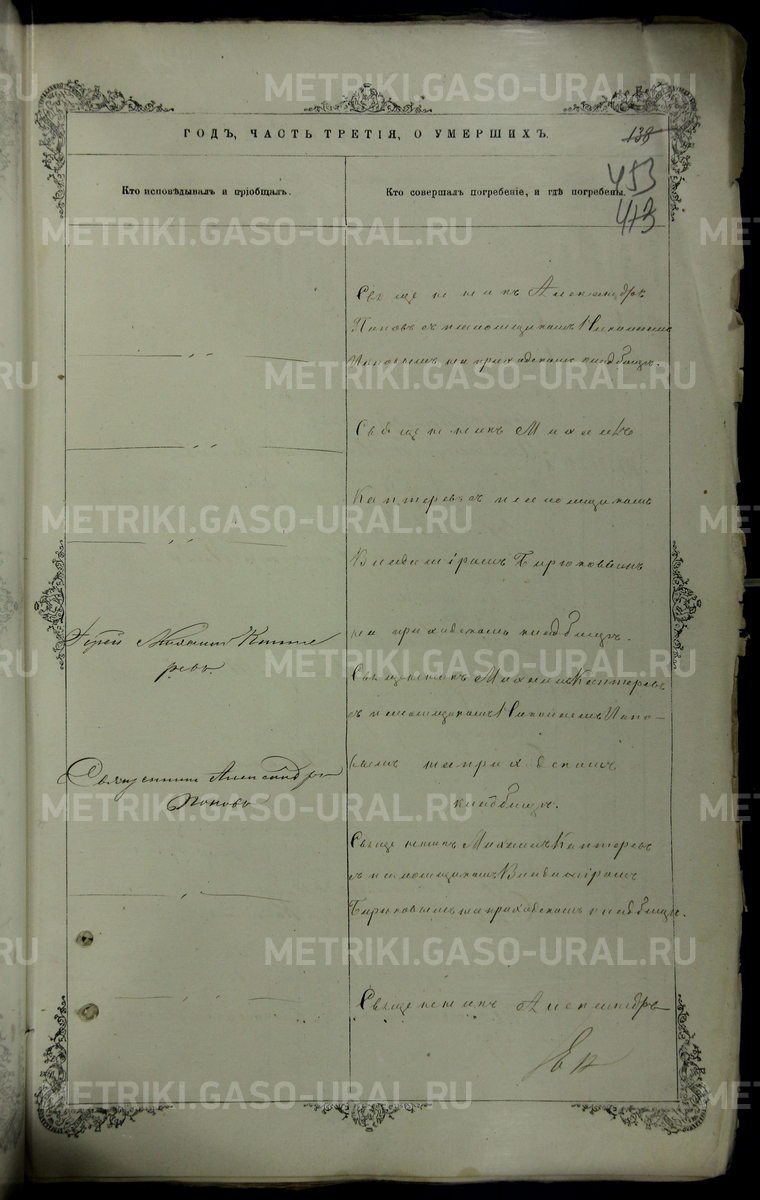 ГОДЪ, ЧАСТЬ ТРЕТІЯ, О УМЕРШИХЪ.
138
453
413
Кто исповѣдывалъ и пріобщалъ.
Кто совершалъ погребеніе, и гдѣ погребены.
Священникъ Александръ
Поповъ съ псаломщикомъ Николаемъ
на приходскомъ кладбищѣ.
Священникъ Михаилъ
Каптеревъ съ псаломщикомъ
Владиміромъ Бирюковымъ
на приходскомъ кладбищѣ.
Іерей Михаилъ Капте
ревъ.
Священникъ Михаилъ Каптеревъ
съ псаломщикомъ Николаемъ
на приходскомъ
кладбищѣ.
Священникъ Александръ
Поповъ
Священникъ Михаилъ Каптеревъ
съ псаломщикомъ Владиміромъ
Бирюковымъ на приходскомъ кладбищѣ.
Священникъ Александръ
METRIKI.GASO-URAL.RU